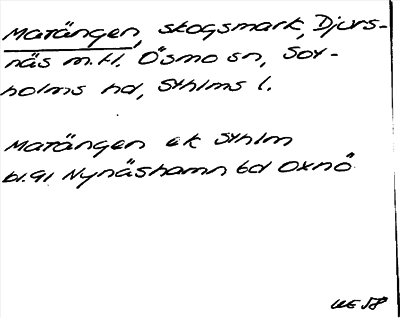 Matängen, skogsmark, Djurs-
näs m.fl. Ösmo sn, Sot-
holms hd, Sthlms l.
Matängen ek Sthlm
bl.91 Nynäshamn 6d Oxnö
58